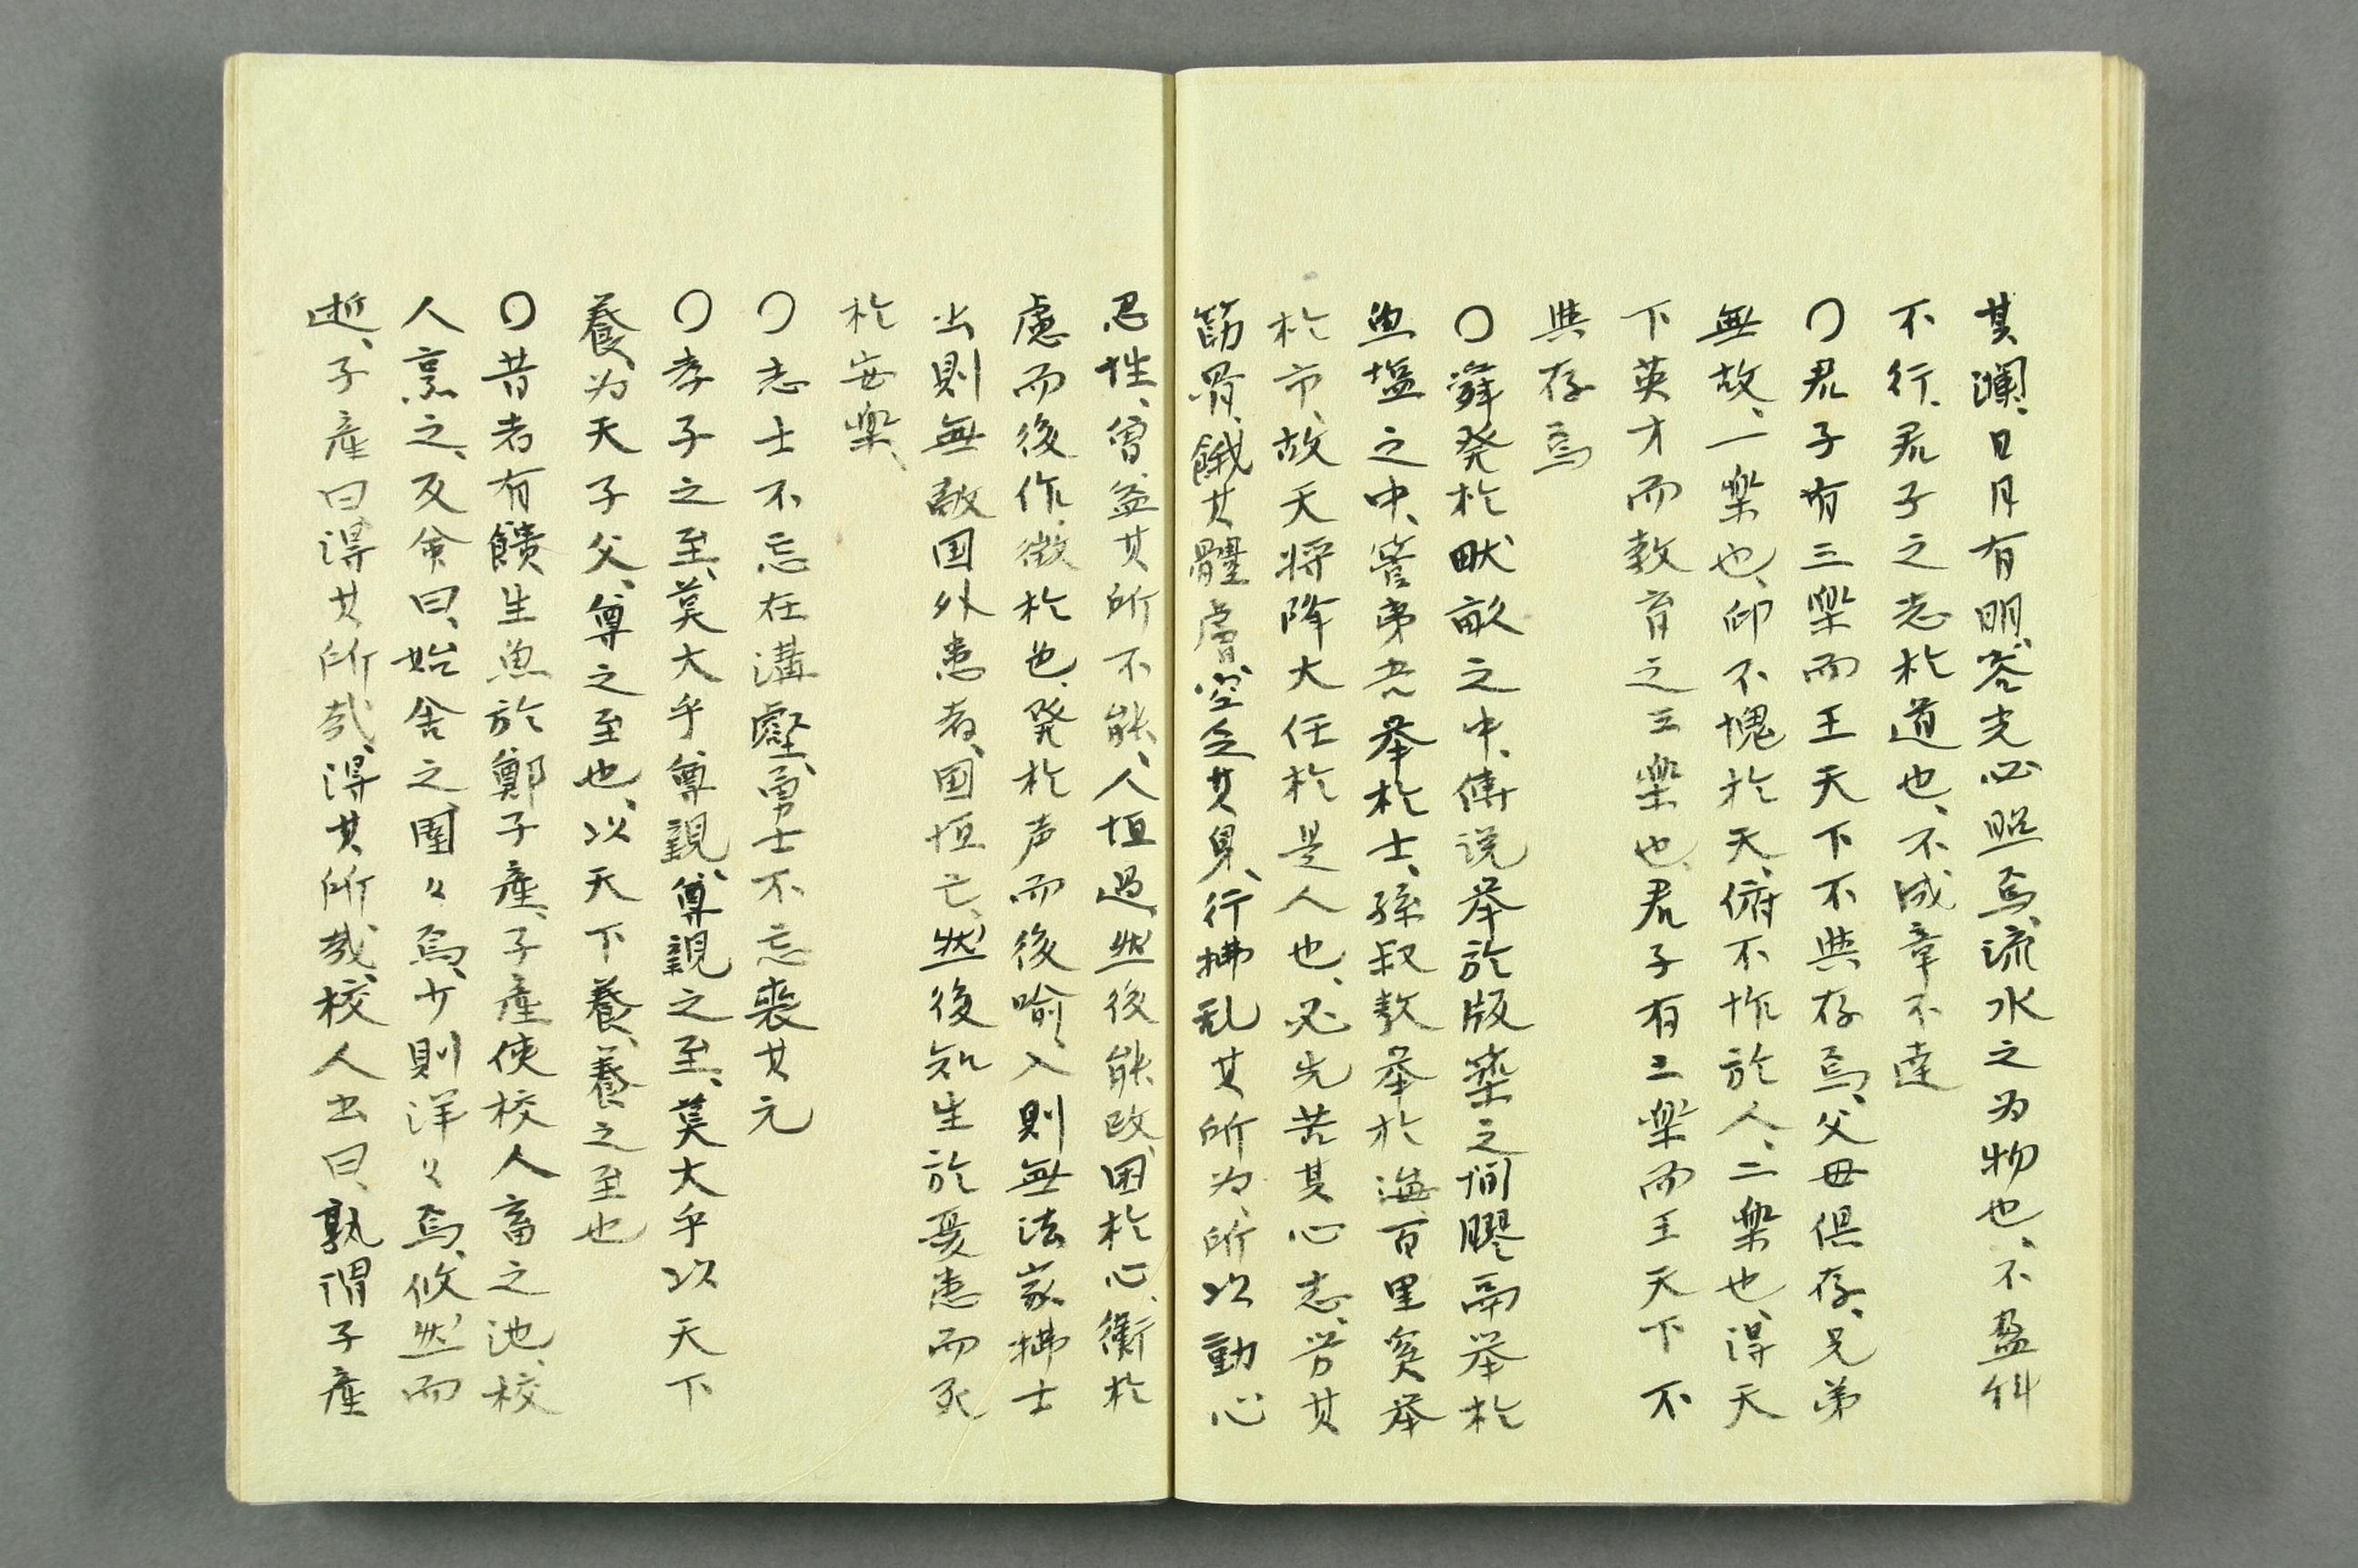 其瀾、日月有明、容光必照焉、流水之为物也、不盈科
不行、君子之志於道也、不成章不達
〇君子有三楽而王天下不與存焉、父母俱存、兄弟
無故、一楽也、仰不愧於天、俯不怍於人、二楽也、得天
下英才而教育之三楽也、君子有三楽而王天下不
與存焉
〇舜発於畎畝之中、傅説挙於版築之間膠鬲挙於
魚塩之中、管夷吾挙於士、孫叔敖挙於海、百里奚挙
於市、故天将降大任於是人也、必先苦其心志、労其
筋骨、餓其體膚、空乏其身、行拂乱其所为、所以動心
忍性、曽益其所不能、人恒過、然後能改、困於心、衡於
慮而後作、徴於色、発於声而後喩、入則無法家拂士
出則無敵国外患者、国恒亡、然後知生於憂患而死
於安楽、
〇志士不忘在溝壑、勇士不忘喪其元
〇孝子之至、莫大乎尊親、尊親之至、莫大乎以天下
養、为天子父、尊之至也、以天下養、養之至也
〇昔者有饋生魚於鄭子産、子産使校人畜之池、校
人烹之、反命曰、始舎之、圉々焉、少則洋々焉、攸然而
逝、子産曰得其所哉、得其所哉、校人出曰、孰謂子産